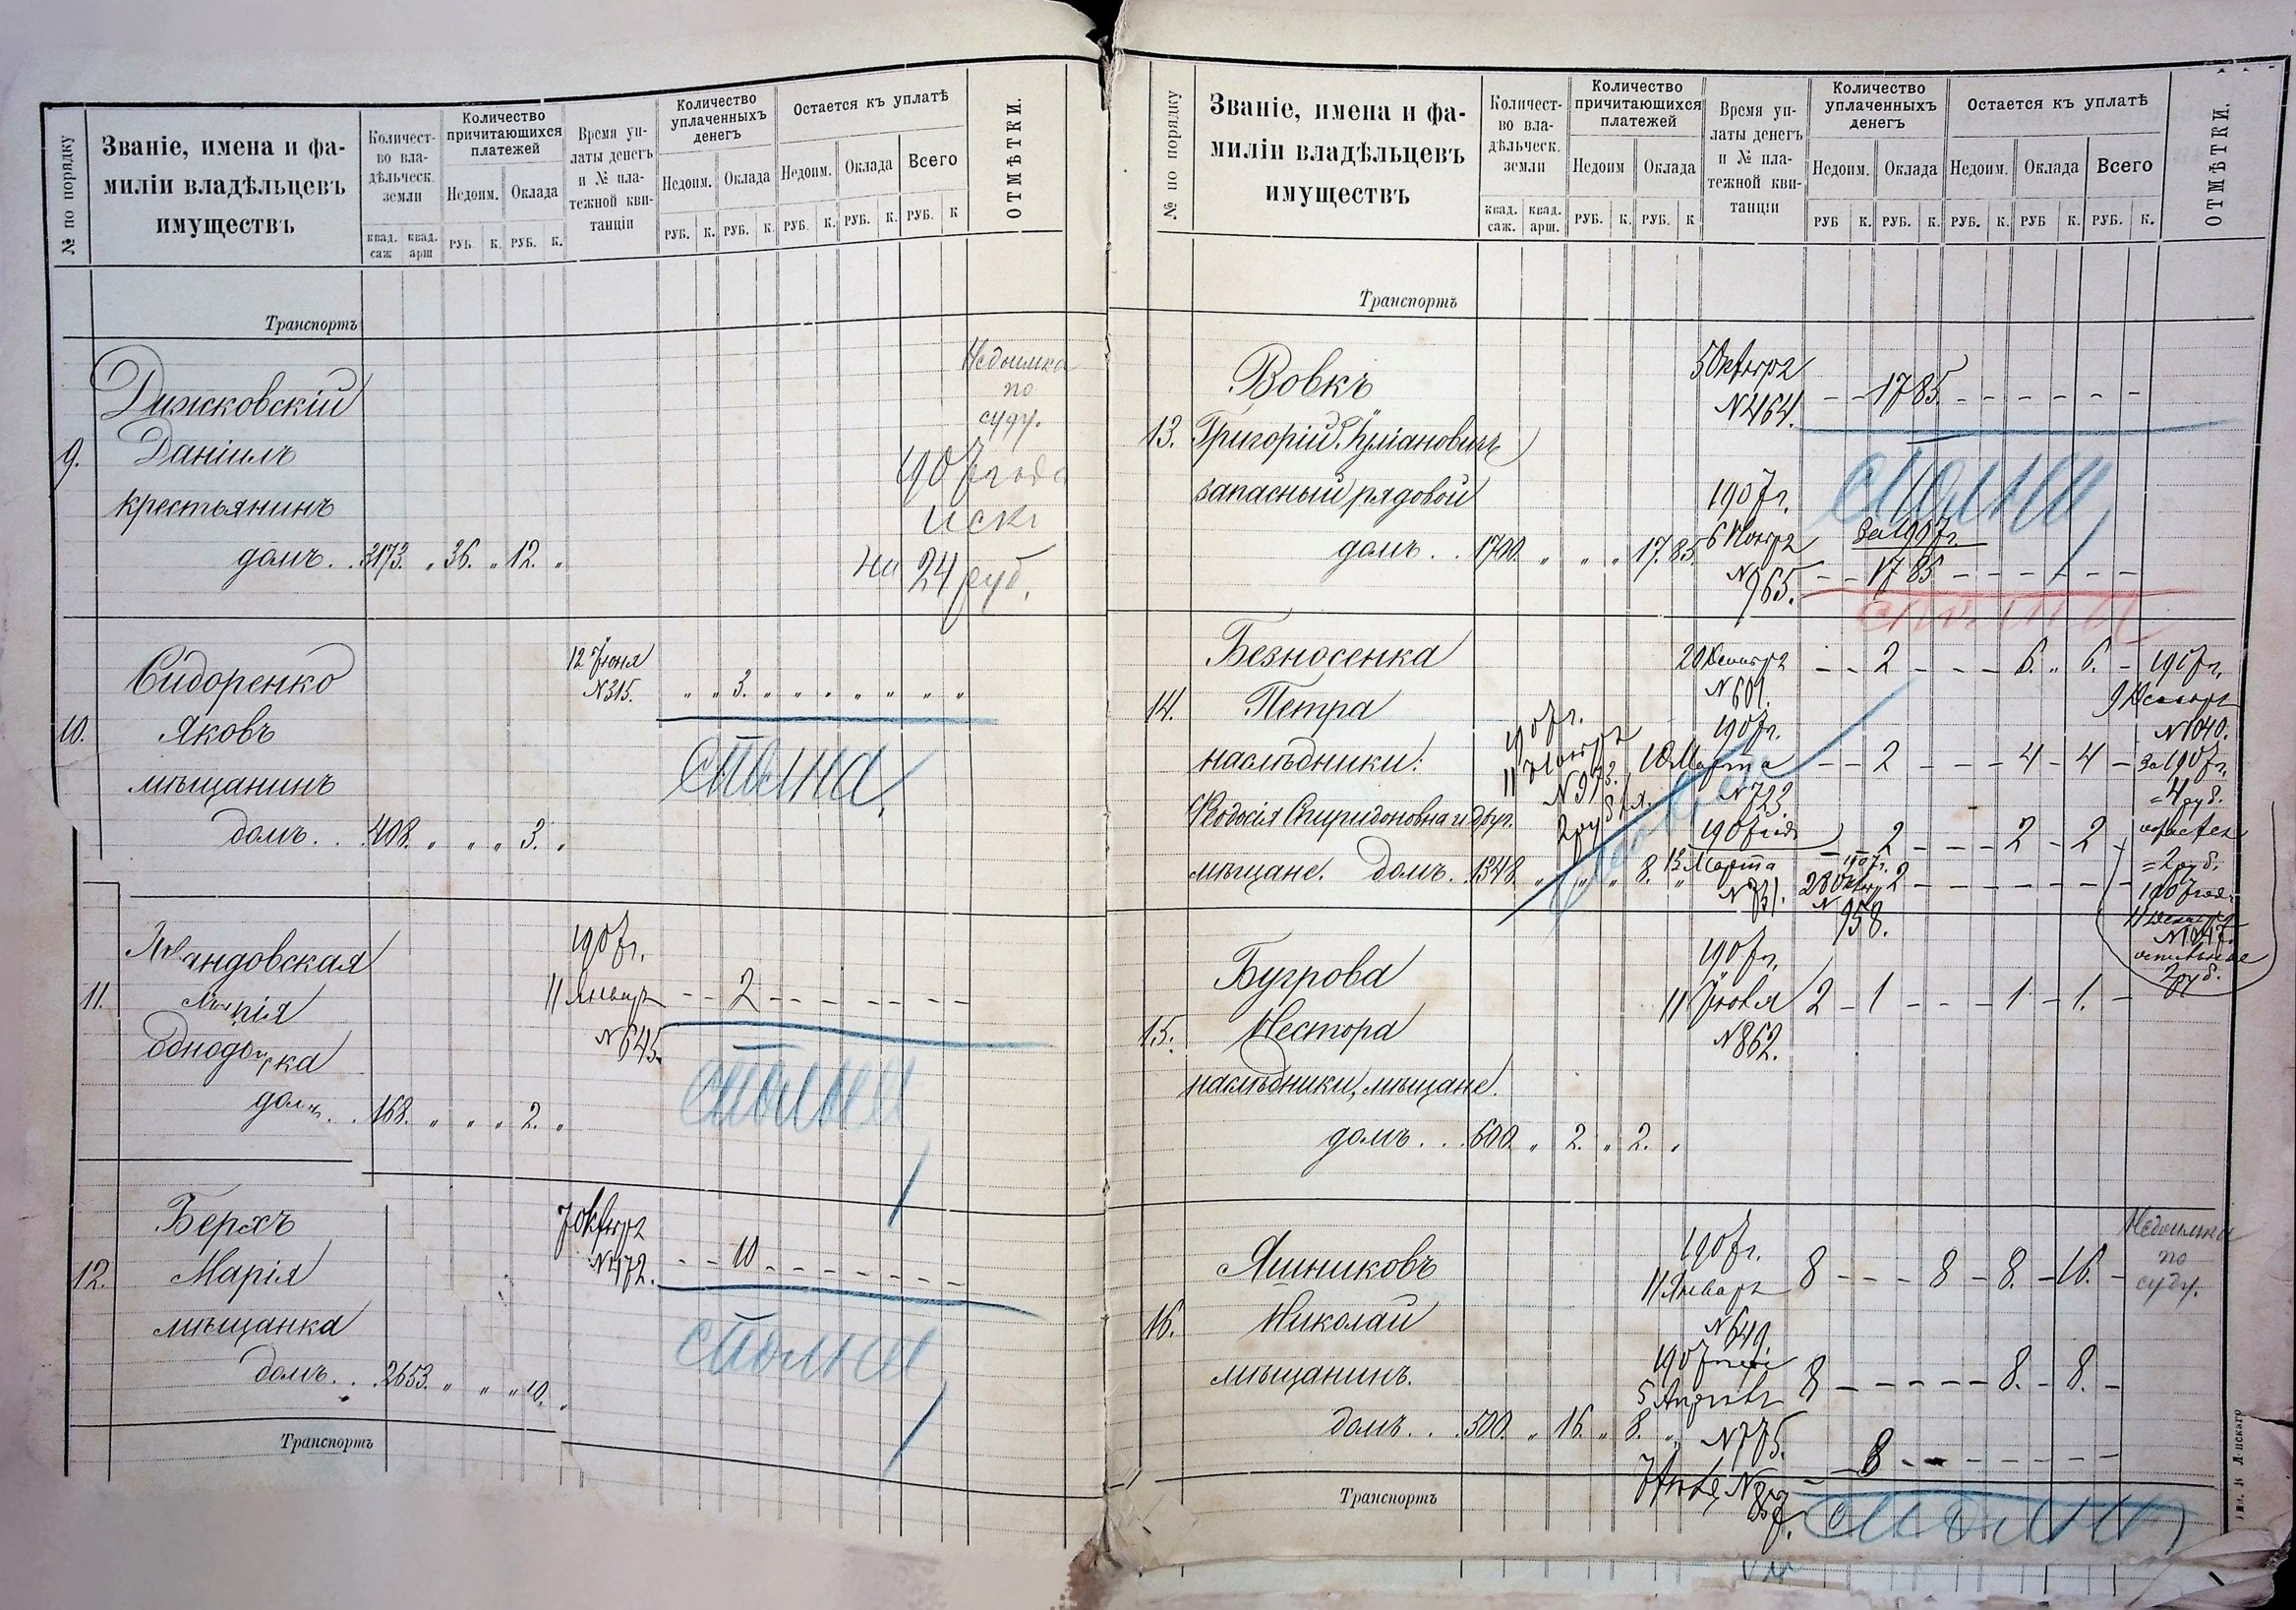 № по порядку
Званіе, имена и фа-
миліи владѣльцевъ
имуществъ
Количест-
во вла-
дѣльческ.
земли
квад. квад.
саж арш
Количество
причитающихся
платежей
Недоим. Оклада
РУБ. К. РУБ. К.
Время уп-
латы денегъ
и № пла-
тежной кви-
танціи
Количество
уплаченныхъ
денегъ
Недоим. Оклада
РУБ. К. РУБ. К.
Остается къ уплатѣ
Недоим. Оклада Всего
РУБ. К. РУБ. К. РУБ. К
ОТМѢТКИ.
Транспортъ
Дижковскій
9. Даніилъ
крестьянинъ
домъ. . 3173. „ 36. „ 12. „
Недоимка
по
суду.
1907 года
искъ
на 24 руб.
Сидоренко
10. Яковъ
мѣщанинъ
домъ. . 408. „ „ „ 3. „
12 Іюня
№ 315. „ „ 3. „ „ „ „ „ „ „
сполна
андовская
11. Марія
однодворка
домъ. . 168. „ „ „ 2. „
1907 г.
11 Январ - - 2 - - - - - - -
№ 645.
сполна
Берхъ
12. Марія
мѣщанка
домъ. . 2653. „ „ „ 10. „
7 Октябр
№ 472. - - 10 - - - - - - -
сполна
Транспортъ
№ по порядку
Званіе, имена и фа-
миліи владѣльцевъ
имуществъ
Количест-
во вла-
дѣльческ.
земли
квад. квад.
саж. арш.
Количество
причитающихся
платежей
Недоим Оклада
РУБ. К. РУБ. К
Время уп-
латы денегъ
и № пла-
тежной кви-
танціи
Количество
уплаченныхъ
денегъ
Недоим. Оклада
РУБ К. РУБ. К.
Остается къ уплатѣ
Недоим. Оклада Всего
РУБ. К. РУБ К. РУБ. К.
ОТМѢТКИ.
Транспортъ
Вовкъ
13. Григорій Юліановичъ
запасный рядовой
домъ . . 1700. „ „ „ 17. 85.
5 Октября
№ 464. - - 17 85. - - - - - -
сполна
1907 г.
6 Ноября За 1907 г.
№ 965. - - 17 85 - - - - - -
сполна
Безносенка
14. Петра
наслѣдники:
Ѳодосія Спиридоновна и друг.
мѣщане. Домъ. . 1348. „ „ „ 8. „
1907 г.
11 Ноября
№ 973.
2 руб
20 Декабря - - 2 - - - 6. „ 6. -
№ 601.
1907 г.
10 Марта - - 2 - - - 4 - 4 -
№ 723.
1907 года - - 2 - - - 2 - 2 -
13 Марта
№ 731.
1907 г.
28 Октяб 2 - - - - - - -
№ 958.
1907 г.
9 Декабр
№ 1040.
За 1907 г.
= 4 руб.
остается
= 2 руб.
1907 года
11 Декабря
№ 1047.
остальные
2 руб.
Бугрова
15. Нестора
наслѣдники, мѣщане.
домъ . . . 600. „ 2. „ 2. „
1907 г.
11 Іюля 2 - 1 - - - 1 - 1. -
№ 862.
Яшниковъ
16. Николай
мѣщанинъ.
домъ. . . 500. „ 16. „ 8. „
1907 г.
11 Январ 8 - - - 8 - 8. - 16. -
№ 649.
1907 года
5 Апрѣля 8 - - - - - 8. - 8. -
№ 775.
- 8 - - - - - - -
Недоимка
по
суду.
сполна
Транспортъ